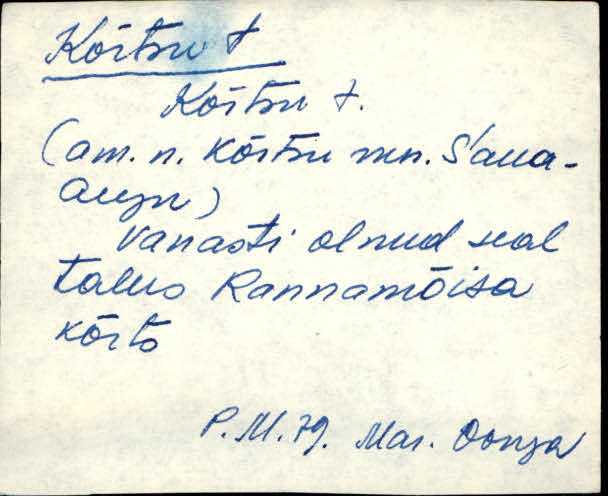 Kõrtsu t
Kõrtsu t.
(am. n. Kõrtsu mn. S'aua-
augu)
Vanasti olnud seal
talus Rannamõisa
kõrts
P. M. 79. Mar.